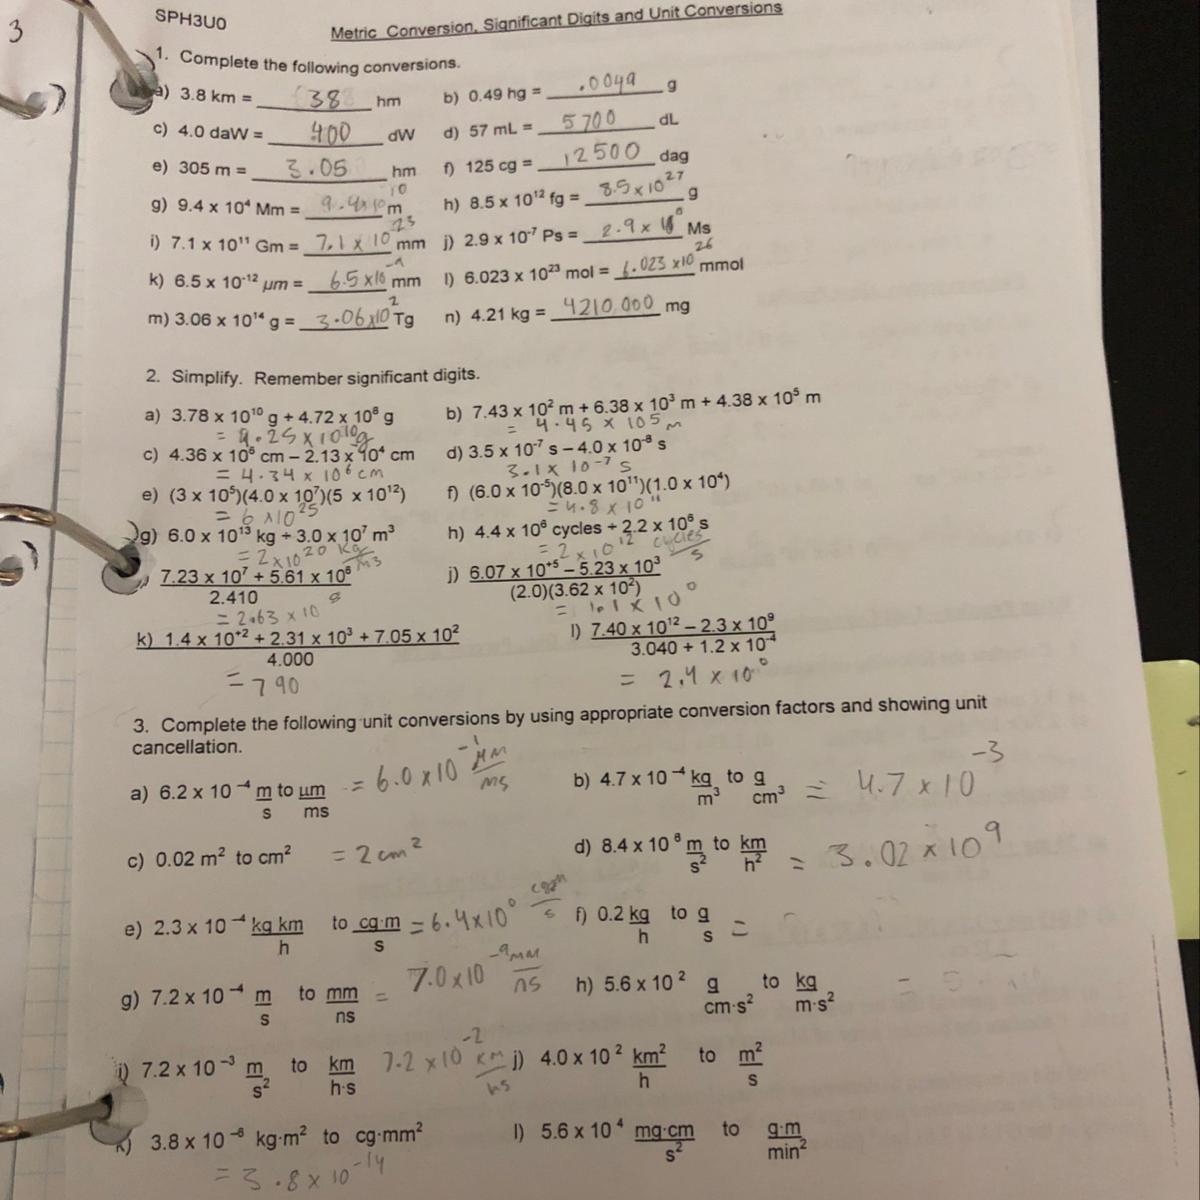 3
SPH3U0
Metric Conversion, Significant Digits and Unit Conversions
1. Complete the following conversions.
a) 3.8 km = 38 hm b) 0.49 hg = .0049 g
c) 4.0 daW = 400 dW d) 57 mL = 5700 dL
e) 305 m = 3.05 hm f) 125 cg = 12500 dag
g) 9.4 x 10⁴ Mm = 9.4x10¹⁰ m h) 8.5 x 10¹² fg = 8.5x10²⁷ g
i) 7.1 x 10¹¹ Gm = 7.1 x 10²³ mm j) 2.9 x 10⁻⁷ Ps = 2.9 x 10⁰ Ms
k) 6.5 x 10⁻¹² µm = 6.5x10⁻⁹ mm l) 6.023 x 10²³ mol = 6.023 x10²⁶ mmol
m) 3.06 x 10¹⁴ g = 3.06x10² Tg n) 4.21 kg = 4210000 mg
2. Simplify. Remember significant digits.
a) 3.78 x 10¹⁰ g + 4.72 x 10⁸ g b) 7.43 x 10² m + 6.38 x 10³ m + 4.38 x 10⁵ m
= 4.25 x 10¹⁰g = 4.45 x 10⁵ m
c) 4.36 x 10⁶ cm – 2.13 x 10⁴ cm d) 3.5 x 10⁻⁷ s – 4.0 x 10⁻⁸ s
= 4.34 x 10⁶ cm 3.1 x 10⁻⁷ s
e) (3 x 10⁵)(4.0 x 10⁷)(5 x 10¹²) f) (6.0 x 10⁻⁵)(8.0 x 10¹¹)(1.0 x 10⁴)
= 6 x10²⁵ = 4.8 x 10¹¹
g) 6.0 x 10¹³ kg ÷ 3.0 x 10⁷ m³ h) 4.4 x 10⁶ cycles ÷ 2.2 x 10⁶ s
= 2 x10²⁰ kg/m3 = 2 x 10¹² cycles/s
7.23 x 10⁷ + 5.61 x 10⁸ j) 6.07 x 10⁺⁵ – 5.23 x 10³
2.410 (2.0)(3.62 x 10²)
= 2.63 x 10⁸ = 1.1 x 10⁰
k) 1.4 x 10⁺² + 2.31 x 10³ + 7.05 x 10² l) 7.40 x 10¹² – 2.3 x 10⁹
4.000 3.040 + 1.2 x 10⁻⁴
= 790 = 2.4 x 10⁰
3. Complete the following unit conversions by using appropriate conversion factors and showing unit
cancellation.
a) 6.2 x 10⁻⁴ m/s to µm/ms = 6.0 x 10⁻¹ µm/ms b) 4.7 x 10⁻⁴ kg/m³ to g/cm³ = 4.7 x 10⁻³
c) 0.02 m² to cm² = 2 cm² d) 8.4 x 10⁸ m/s² to km/h² = 3.02 x 10⁹
e) 2.3 x 10⁻⁴ kg·km/h to cg·m/s = 6.4x10⁰ cgm/s f) 0.2 kg/h to g/s =
g) 7.2 x 10⁻⁴ m/s to mm/ns = 7.0x10⁻⁹ mm/ns h) 5.6 x 10² g/cm·s² to kg/m·s² =
i) 7.2 x 10⁻³ m/s² to km/h·s 7.2 x10⁻² km/hs j) 4.0 x 10² km²/h to m²/s
k) 3.8 x 10⁻⁶ kg·m² to cg·mm² l) 5.6 x 10⁴ mg·cm/s² to g·m/min²
= 3.8 x 10⁻¹⁴